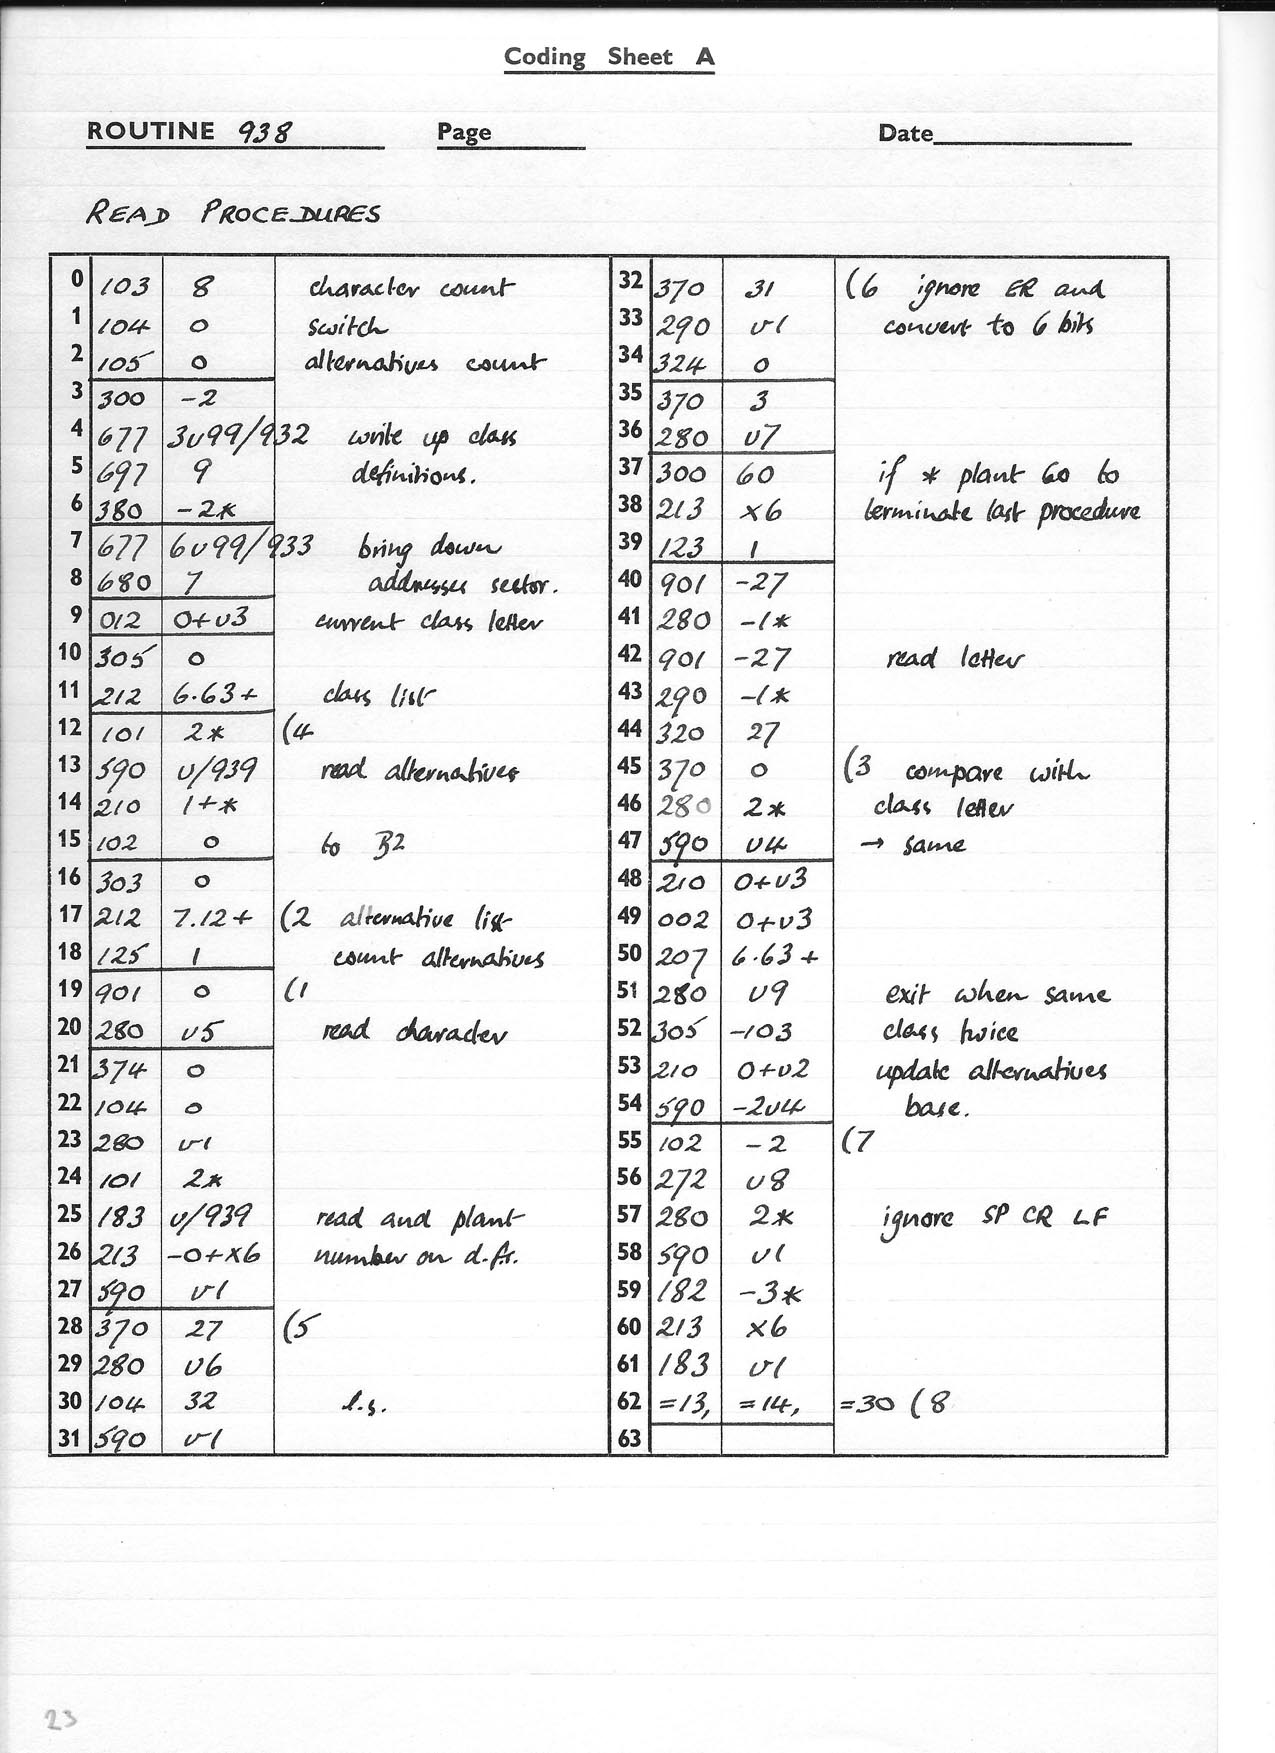 Coding Sheet A
ROUTINE 938 Page Date
READ PROCEDURES
0 103 8 character count
1 104 0 switch
2 105 0 alternatives count
3 300 -2
4 677 3v99/932 write up class
5 697 9 definitions.
6 380 -2*
7 677 6v99/933 bring down
8 680 7 addresses sector.
9 012 0+v3 current class letter
10 305 0
11 212 6.63+ class list
12 101 2* (4
13 590 v/939 read alternatives
14 210 1+*
15 102 0 to B2
16 303 0
17 212 7.12+ (2 alternative list
18 125 1 count alternatives
19 901 0 (1
20 280 v5 read character
21 374 0
22 104 0
23 280 v1
24 101 2*
25 183 v/939 read and plant
26 213 -0+x6 number on d.ft.
27 590 v1
28 370 27 (5
29 280 v6
30 104 32 l.s.
31 590 v1
32 370 31 (6 ignore ER and
33 290 v1 convert to 6 bits
34 324 0
35 370 3
36 280 v7
37 300 60 if * plant 60 to
38 213 x6 terminate last procedure
39 123 1
40 901 -27
41 280 -1*
42 901 -27 read letter
43 290 -1*
44 320 27
45 370 0 (3 compare with
46 280 2* class letter
47 590 v4 → same
48 210 0+v3
49 002 0+v3
50 207 6.63+
51 280 v9 exit when same
52 305 -103 class twice
53 210 0+v2 update alternatives
54 590 -2v4 base.
55 102 -2 (7
56 272 v8
57 280 2* ignore SP CR LF
58 590 v1
59 182 -3*
60 213 x6
61 183 v1
62 =13, =14, =30 (8
63
23